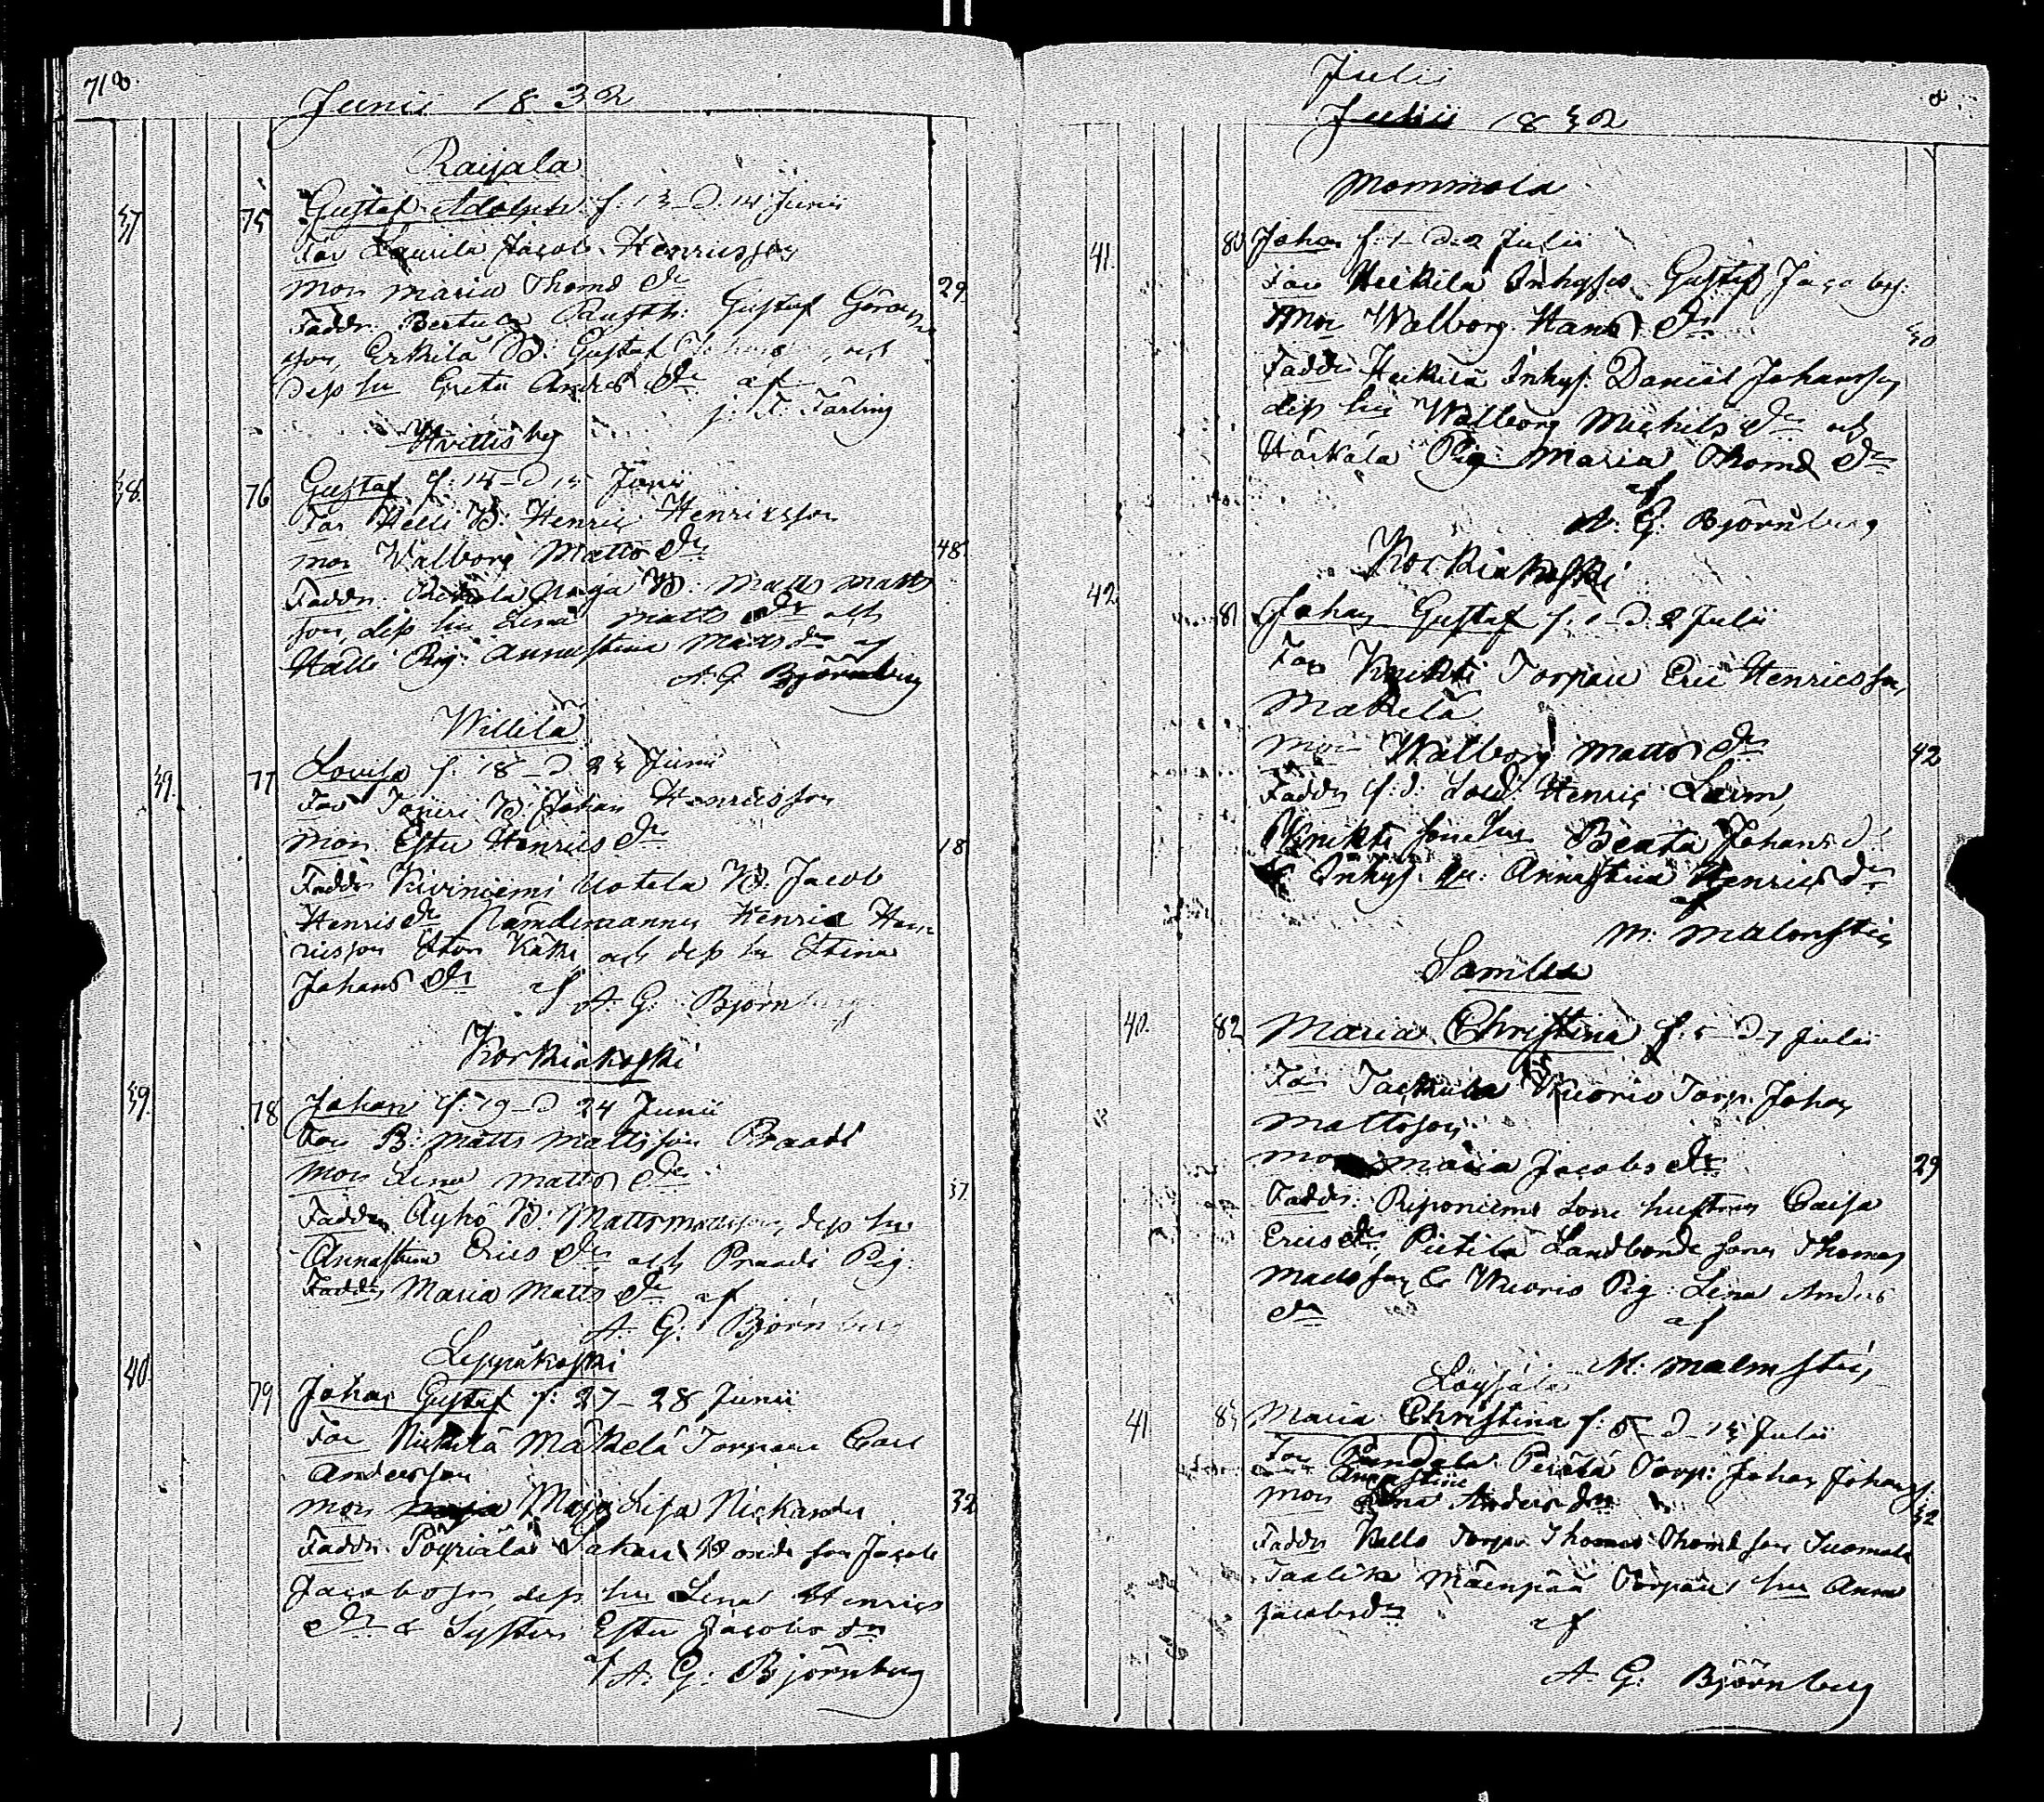 718
Junii 1832
Raijala
37 75 Gustaf Adolph f: 13 – D. 14 Junii
Far Laurila Jacob Henricsson
Mor Maria Thoms dr 29
Faddr: Rusth: Gustaf Göran
son, Erkilä B: Gustaf och
Dess hu Greta Anders dr af
j. F: Färling
Hvittisby
38. 76 Gustaf f: 14 – D 15 Junii
Far B: Henric Henricsson
mor Walborg Matts dr 48
Faddr: B: Matts Matts
son, dess hu Lena Matts dr och
Pig: Annastina Matts dr af
A. G. Björnberg
Willilä
39. 77 Lovisa f: 18 – D. 23 Junii
Far B: Johan Henricsson
mor Ester Henrics dr 18
Faddr Kiviniemi Uotela B: Jacob
Henrics dr Nämdemannen Henric Hen
ricsson Stor och dess hu Stina
Johans dr af A. G. Björnberg
Korkiakoski
39. 78 Johan f: 19 – D 24 Junii
Far B: Matts Mattsson Praadi
Mor Lena Matts dr 37
Faddr Äyhö B: Matts Mattsson, dess hu
Annastina Erics dr och Praadi Pig:
Faddr Maria Matts dr af
A. G. Björnberg
Leppäkoski
40. 79 Johan Gustaf f: 27 – 28 Junii
Far Mäkelä Torpare Carl
Andersson
mor Maja Lisa Nickander 32
Faddr: Pöyriälä Sakari Bonde son Jacob
Jacobsson, dess hu Lena Henrics
dr & Syster Ester Jacobs dr
af A. G. Björnberg
Julii
Julii 1832
Mommola
41. 80 Johan f: 1 – D. 2 Julii
Far Heikilä Inhyses Gustaf Jacobss:
Mor Walborg Hans dr 30
Faddr Heikilä Inhys: Daniel Johansson
dess hu Walborg Michels dr och
Härkälä Pig: Maria Thoms dr
af
A. G. Björnberg
Korkiakoski
42 81 Johan Gustaf f: 1 – D. 2 Julii
Far Knihti Torpare Eric Henricsson
Mäkelä
Mor Walborg Matts dr 42
Faddr f. d. Sold: Henric Larm,
Knihti Sone hu Beata Johans d:
& Inhys: hu: Annastina Henrics dr
af
M: Malmsten
Samlia
40. 82 Maria Christina f: 5 – D 7 Julii
Far Tackula Wuorio Torp: Johan
Mattsson
mor Maria Jacobs dr 29
Faddr: Riponiemi Sone hustrun Caisa
Erics dr, Pietilä Landbonde sonen Thomas
Mattsson & Wuorio Pig: Lena Anders
dr af
M: Malmsten
41 83 Maria Christina f: 5 – D – 13 Julii
Far Perälä Torp: Johan Johans
Annastina
mor Lena Anders dr 32
Faddr Kallo Torpa: Thomas Thomsson
Mäenpää Torpare hu Anna
Jacobs dr af
A. G. Björnberg